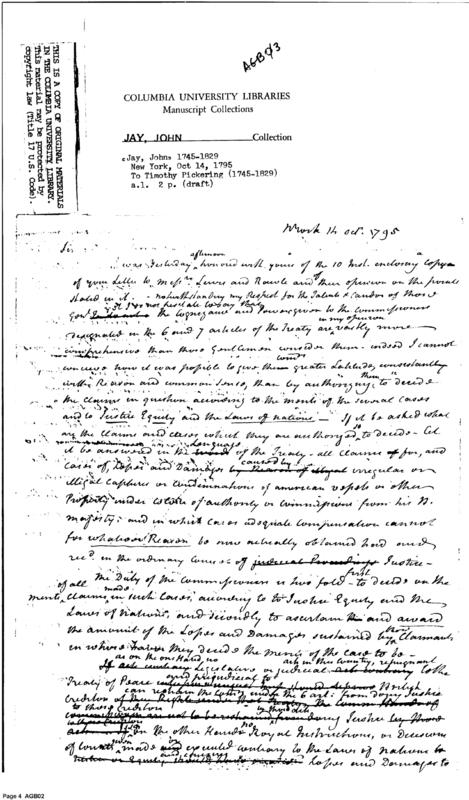 AGB03
THIS IS A COPY OF ORIGINAL MATERIALS
IN THE COLUMBIA UNIVERSITY LIBRARY.
This material may be protected by
copyright law (Title 17 U.S. Code).
COLUMBIA UNIVERSITY LIBRARIES
Manuscript Collections
JAY, JOHN Collection
cJay, John: 1745-1829
New York, Oct 14, 1795
To Timothy Pickering (1745-1829)
a.l. 2 p. (draft)
NYork 14 Oct. 1795
Sir
afternoon
was Yesterday honored with yours of the 10 Inst. enclosing Copy
of your Letter to Messrs Lewis and Rawle and their opinion on the points
stated in it. - notwithstanding my Respect for the Talents & Candor of those
Gentn I do not hesitate to say that the Cognizance and Power given to the Commissioners
in my opinion
designated in the 6 and 7 articles of the Treaty are vastly more
comprehensive than those Gentlemen consider them - indeed I cannot
conceive how it was possible to give them greater Latitude, consistently
them
with Reason and common Sense, than by authorizing to decide
the Claims in question according to the merits of the several cases
and to Justice Equity and the Laws of nations - If it be asked what
are the Claims and Cases which they are authorized to decide - let
Language
it be answered in the of the Treaty - all claims for, and
caused by
Cases of, Losses and Damages by Reason of illegal irregular or
illegal Captures or Condemnations of american vessels or other
Property under Colour of authority or Commissions from his B.
majesty; and in which Cases adequate Compensation cannot
for whatever Reason be now actually obtained had and
recd in the ordinary course of judicial Proceedings Justice -
first
The Duty of the Commissioners is two fold - to decide on the
of all made
merits, Claims in such Cases, according to Justice Equity and the
Laws of Nations, and secondly to ascertain and award
the amount of the Losses and Damages sustained by those Claimants
in whose favor they decide the merits of the case to be -
as on the one Hand, no act in this country, repugnant
If Legislative or judicial to the
and prejudicial to
Treaty of Peace British
Creditors can restrain the Comrs under the 6 art: from doing Justice
to those Creditors
On the other Hand no Royal Instructions, or Decisions
of courts, made or executed contrary to the Laws of Nations
or Equity Losses and Damages to
Page 4 AGB02